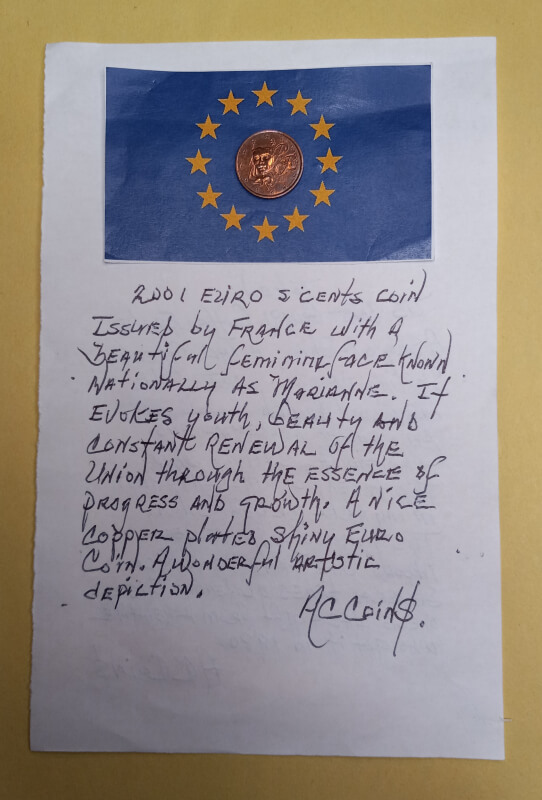 2001 EURO 5 CENTS COIN
ISSUED by FRANCE with A
beautiful feminine face KNOWN
NATIONALLY AS MARIANNE. It
EVOKES youth, beauty AND
CONSTANT RENEWAL OF the
UNION through the ESSENCE of
PROGRESS AND growth. A NICE
COPPER plated shiny EURO
COIN. A WONDERFUL ARTISTIC
depiction.
AC COIN$.